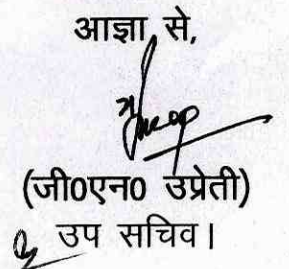 आज्ञा से,
(जी0एन0 उप्रेती)
उप सचिव।